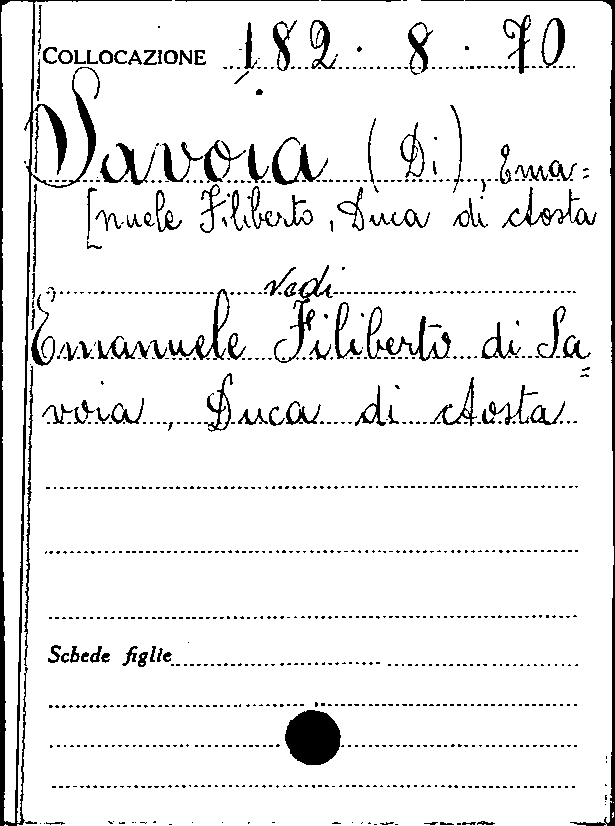 COLLOCAZIONE 182 . 8 . 70
Savoia (Di), Ema=
[nuele Filiberto, Duca di Aosta
Vedi
Emanuele Filiberto di Sa=
voia, Duca di Aosta
Schede figlie